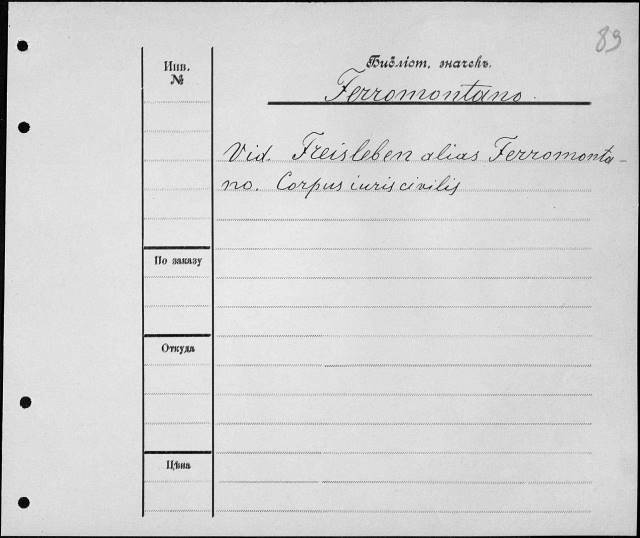 89
Библіот. значекъ.
Инв.
№
Ferromontano.
Vid. Freisleben alias Ferromonta-
no. Corpus iuris civilis
По заказу
Откуда
Цѣна